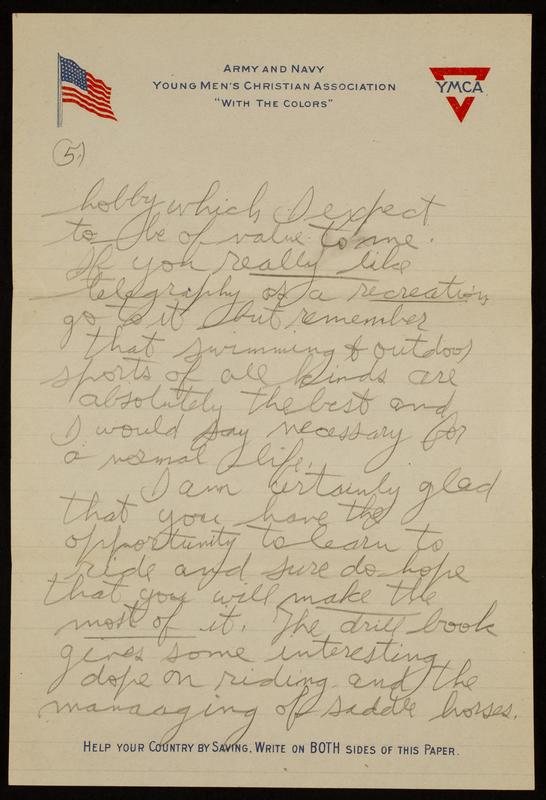 ARMY AND NAVY
YOUNG MEN'S CHRISTIAN ASSOCIATION
"WITH THE COLORS"
YMCA
5.)
hobby which I expect
to be of value to me.
If you really like
telegraphy as a recreation
go to it but remember
that swimming & outdoor
sports of all kinds are
absolutely the best and
I would say necessary for
a normal life.
I am certainly glad
that you have the
opportunity to learn to
ride and sure do hope
that you will make the
most of it. The drill book
gives some interesting
dope on riding and the
manaaging of saddle horses.
HELP YOUR COUNTRY BY SAVING. WRITE ON BOTH SIDES OF THIS PAPER.